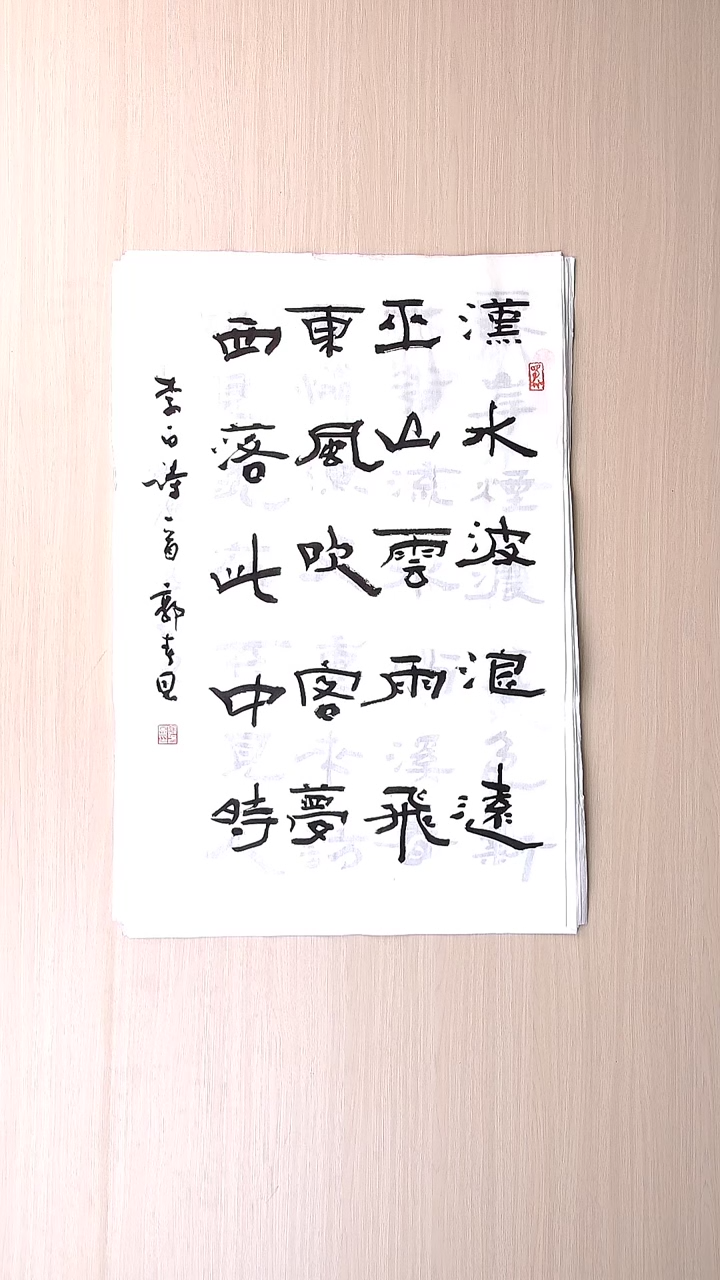 漢水波浪遠
巫山雲雨飛
東風吹客夢
西落此中時
李白詩一首 郭